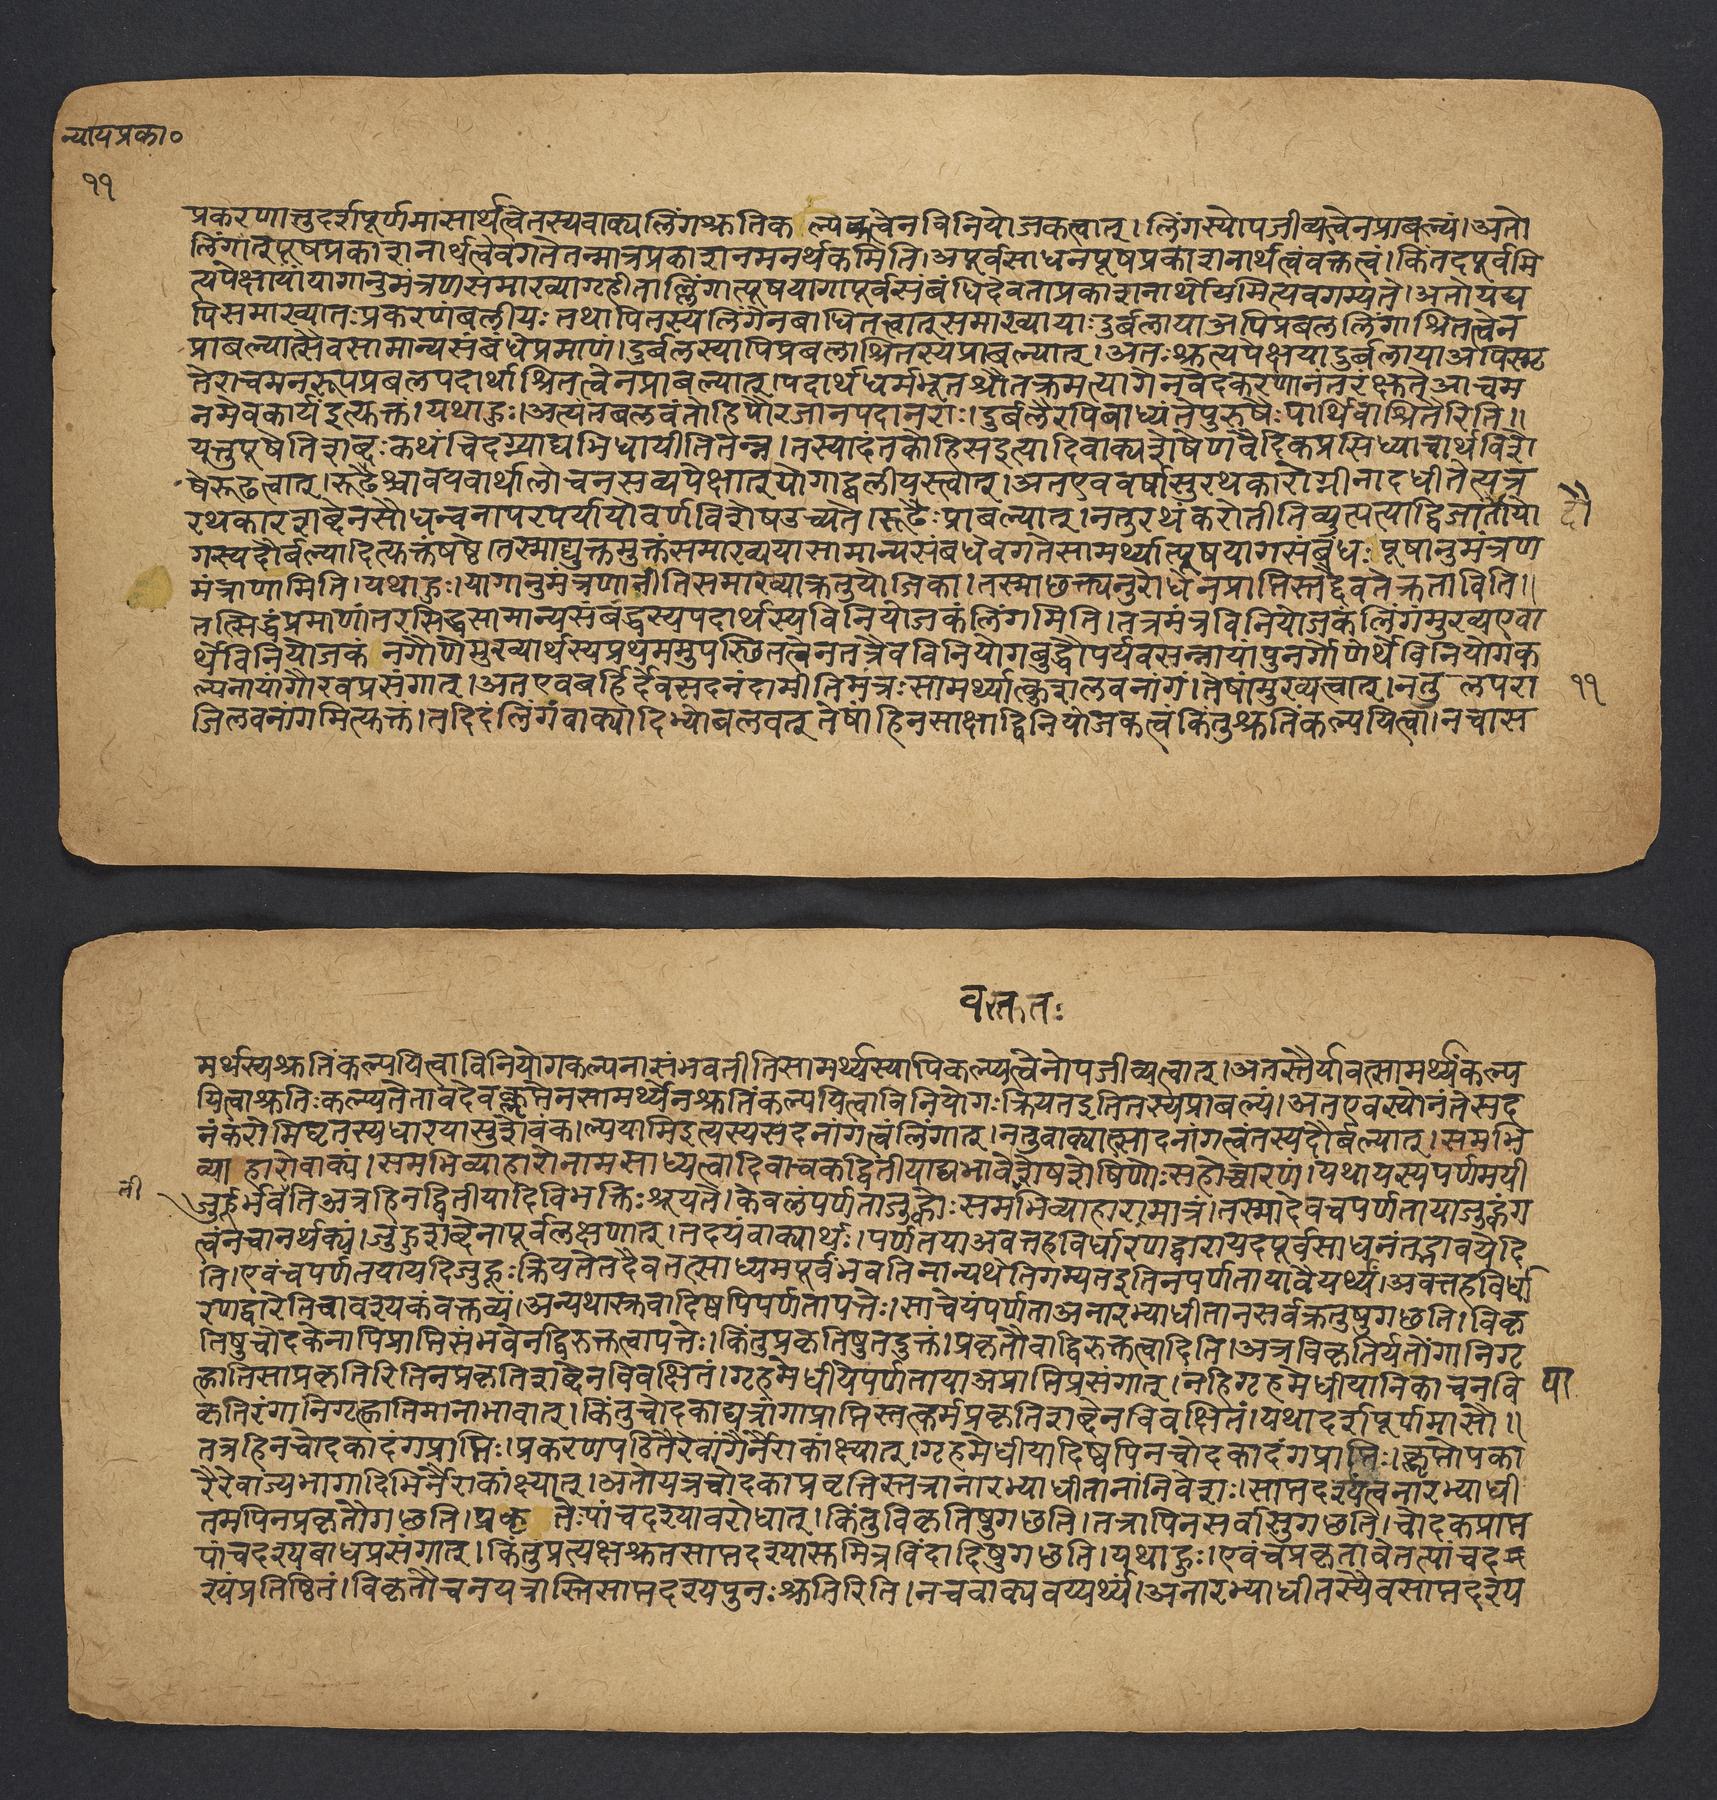 न्यायप्रका०
११
प्रकरणात्तुदर्शपूर्णमासार्थत्वेतस्यवाक्यलिंगश्रुतिक ल्पकत्वेनविनियोजकत्वात्। लिंगस्योपजीव्यत्वेनप्राबल्यं।अतो
लिंगात्पूषप्रकाशनार्थत्वेवगतेतन्मात्रप्रकाशनमनर्थकमिति।अपूर्वसाधनपूषप्रकाशनार्थत्वंवक्तव्यं।किंतदपूर्वमि
त्यपेक्षायांयागानुमंत्रणसमाख्यागृहीताल्लिंगात्पूषयागापूर्वसंबंधिदेवताप्रकाशनार्थोयमित्यवगम्यते।अतोयद्य
पिसमाख्यातःप्रकरणंबलीयः तथापितस्यलिंगेनबाधितत्वात्समाख्यायाःदुर्बलायाअपिप्रबललिंगाश्रितत्वेन
प्राबल्यात्सैवसामान्यसंबंधेप्रमाणं।दुर्बलस्यापिप्रबलाश्रितस्यप्राबल्यात्।अतःश्रुत्यपेक्षयादुर्बलायाअपिस्मृ
तेराचमनरूपप्रबलपदार्थाश्रितत्वेनप्राबल्यात्।पदार्थधर्मभूतश्रौतक्रमत्यागेनवेदकरणानंतरंक्षुतेआचम
नमेवकार्यंइत्युक्तं।यथाहुः।अत्यंतबलवंतोहिपौरजानपदानराः।दुर्बलैरपिबाध्यंतेपुरुषैःपार्थिवाश्रितैरिति॥
यत्तुपूषेतिशब्दःकथंचिदग्न्याद्यभिधायीतितन्न।तस्यादंतकोहिसइत्यादिवाक्यशेषेणवैदिकप्रसिध्याचार्थविशे
षेरूढत्वात्।रूढेश्चावयवार्थालोचनसव्यपेक्षात्योगाद्बलीयस्त्वात्।अतएववर्षासुरथकारोग्नीनादधीतेत्यत्र
रथकारशब्देनसौधन्वनापरपर्यायोवर्णविशेषउच्यते।रूढेःप्राबल्यात्।नतुरथंकरोतीतिव्युत्पत्त्याद्विजातीयो
दौ
गस्यदौर्बल्यादित्युक्तंषष्ठे।तस्माद्युक्तमुक्तंसमाख्ययासामान्यसंबंधेवगतेसामर्थ्यात्पूषयागसंबंधः पूषानुमंत्रण
मंत्राणामिति।यथाहुः।यागानुमंत्रणानीतिसमाख्याक्रतुयोजिका।तस्माछक्त्यनुरोधेनप्राप्तिस्तद्देवतेक्रताविति॥
तत्सिद्धंप्रमाणांतरसिद्धसामान्यसंबद्धस्यपदार्थस्यविनियोजकंलिंगमिति।तत्रमंत्रविनियोजकंलिंगंमुख्यएवा
र्थेविनियोजकं नगौणेमुख्यार्थस्यप्रथममुपस्थितत्वेनतत्रैवविनियोगबुद्धौपर्यवसन्नायांपुनर्गौणेर्थेविनियोगक
ल्पनायांगौरवप्रसंगात्।अतएवबर्हिर्देवसदनंदामीतिमंत्रःसामर्थ्यात्कुशलवनांगं।तेषांमुख्यत्वात्।नतु लपरा
११
जिलवनांगमित्युक्तं।तदिदंलिंगंवाक्यादिभ्योबलवत् तेषांहिनसाक्षाद्विनियोजकत्वंकिंतुश्रुतिंकल्पयित्वा।नचास
वस्तुतः
मर्थस्यश्रुतिंकल्पयित्वाविनियोगकल्पनासंभवतीतिसामर्थ्यस्यापिकल्प्यत्वेनोपजीव्यत्वात्।अतस्तैर्यावत्सामर्थ्यंकल्प
यित्वाश्रुतिःकल्प्यतेतावदेवक्लृप्तेनसामर्थ्येनश्रुतिंकल्पयित्वाविनियोगःक्रियतइतितस्यप्राबल्यं।अतएवस्योनंतेसद
नंकरोमिघृतस्यधारयासुशेवंक।ल्पयामिइत्यस्यसदनांगत्वंलिंगात्।नतुवाक्यात्सादनांगत्वंतस्यदौर्बल्यात्।समभि
व्या हारोवाक्यं।समभिव्याहारोनामसाध्यत्वादिवाचकद्वितीयाद्यभावेशेषशेषिणोःसहोच्चारणं।यथायस्यपर्णमयी
ती
जुहूर्भवतिअत्रहिनद्वितीयादिविभक्तिःश्रूयते।केवलंपर्णताजुह्वोःसमभिव्याहारामात्रं।तस्मादेवचपर्णतायाजुह्वंग
त्वंनचानर्थक्यं।जुहुशब्देनापूर्वलक्षणात्।तदयंवाक्यार्थः।पर्णतयाअवत्तहविर्धारणद्वारायदपूर्वसाधनंतद्भावयेदि
ति।एवंचपर्णतयायदिजुहूःक्रियतेतदैवतत्साध्यमपूर्वंभवतिनान्यथेतिगम्यतइतिनपर्णतायावैयर्थ्यं।अवत्तहविर्धा
रणद्वारेतिचावश्यकंवक्तव्यं।अन्यथास्रुवादिष्वपिपर्णतापत्तेः।साचेयंपर्णताअनारभ्याधीतानसर्वक्रतुषुगछति।विकृ
तिषुचोदकेनापिप्राप्तिसंभवेनद्विरुक्तत्वापत्तेः।किंतुप्रकृतिषुतदुक्तं।प्रकृतौवाद्विरुक्तत्वादिति।अत्रविकृतिर्यतोंगानिगृ
ह्णातिसाप्रकृतिरितिनप्रकृतिशब्देनविवक्षितं।गृहमेधीयेपर्णतायाअप्राप्तिप्रसंगात्।नहिगृहमेधीयानिकाचनवि
या
कृतिरंगानिगृह्णातिमानाभावात्।किंतुचोदकाद्यत्रांगाप्राप्तिस्तत्कर्मप्रकृतिशब्देनविवक्षितं।यथादर्शपूर्णमासौ॥
तत्रहिनचोदकादंगप्राप्तिः।प्रकरणपठितैरेवांगैर्नैराकांक्ष्यात्।गृहमेधीयादिष्वपिनचोदकादंगप्राप्तिः।क्लृप्तोपका
रैरेवाज्यभागादिभिर्नैराकांक्ष्यात्।अतोयत्रचोदकाप्रवृत्तिस्तत्रानारभ्याधीतानांनिवेशः।साप्तदश्यंत्वनारभ्याधी
तमपिनप्रकृतौगछति।प्रकृ तेःपांचदश्यावरोधात्।किंतुविकृतिषुगछति।तत्रापिनसर्वासुगछति।चोदकप्राप्त
पांचदश्यबाधप्रसंगात्।किंतुप्रत्यक्षश्रुतसाप्तदश्यासुमित्रविंदादिषुगछति।यथाहुः।एवंचप्रकृतावेतत्पांचद
श्यंप्रतिष्ठितं।विकृतौचनयत्रास्तिसाप्तदश्यपुनःश्रुतिरिति।नचवाक्यवय्यर्थ्यं।अनारभ्याधीतस्यैवसाप्तदश्य